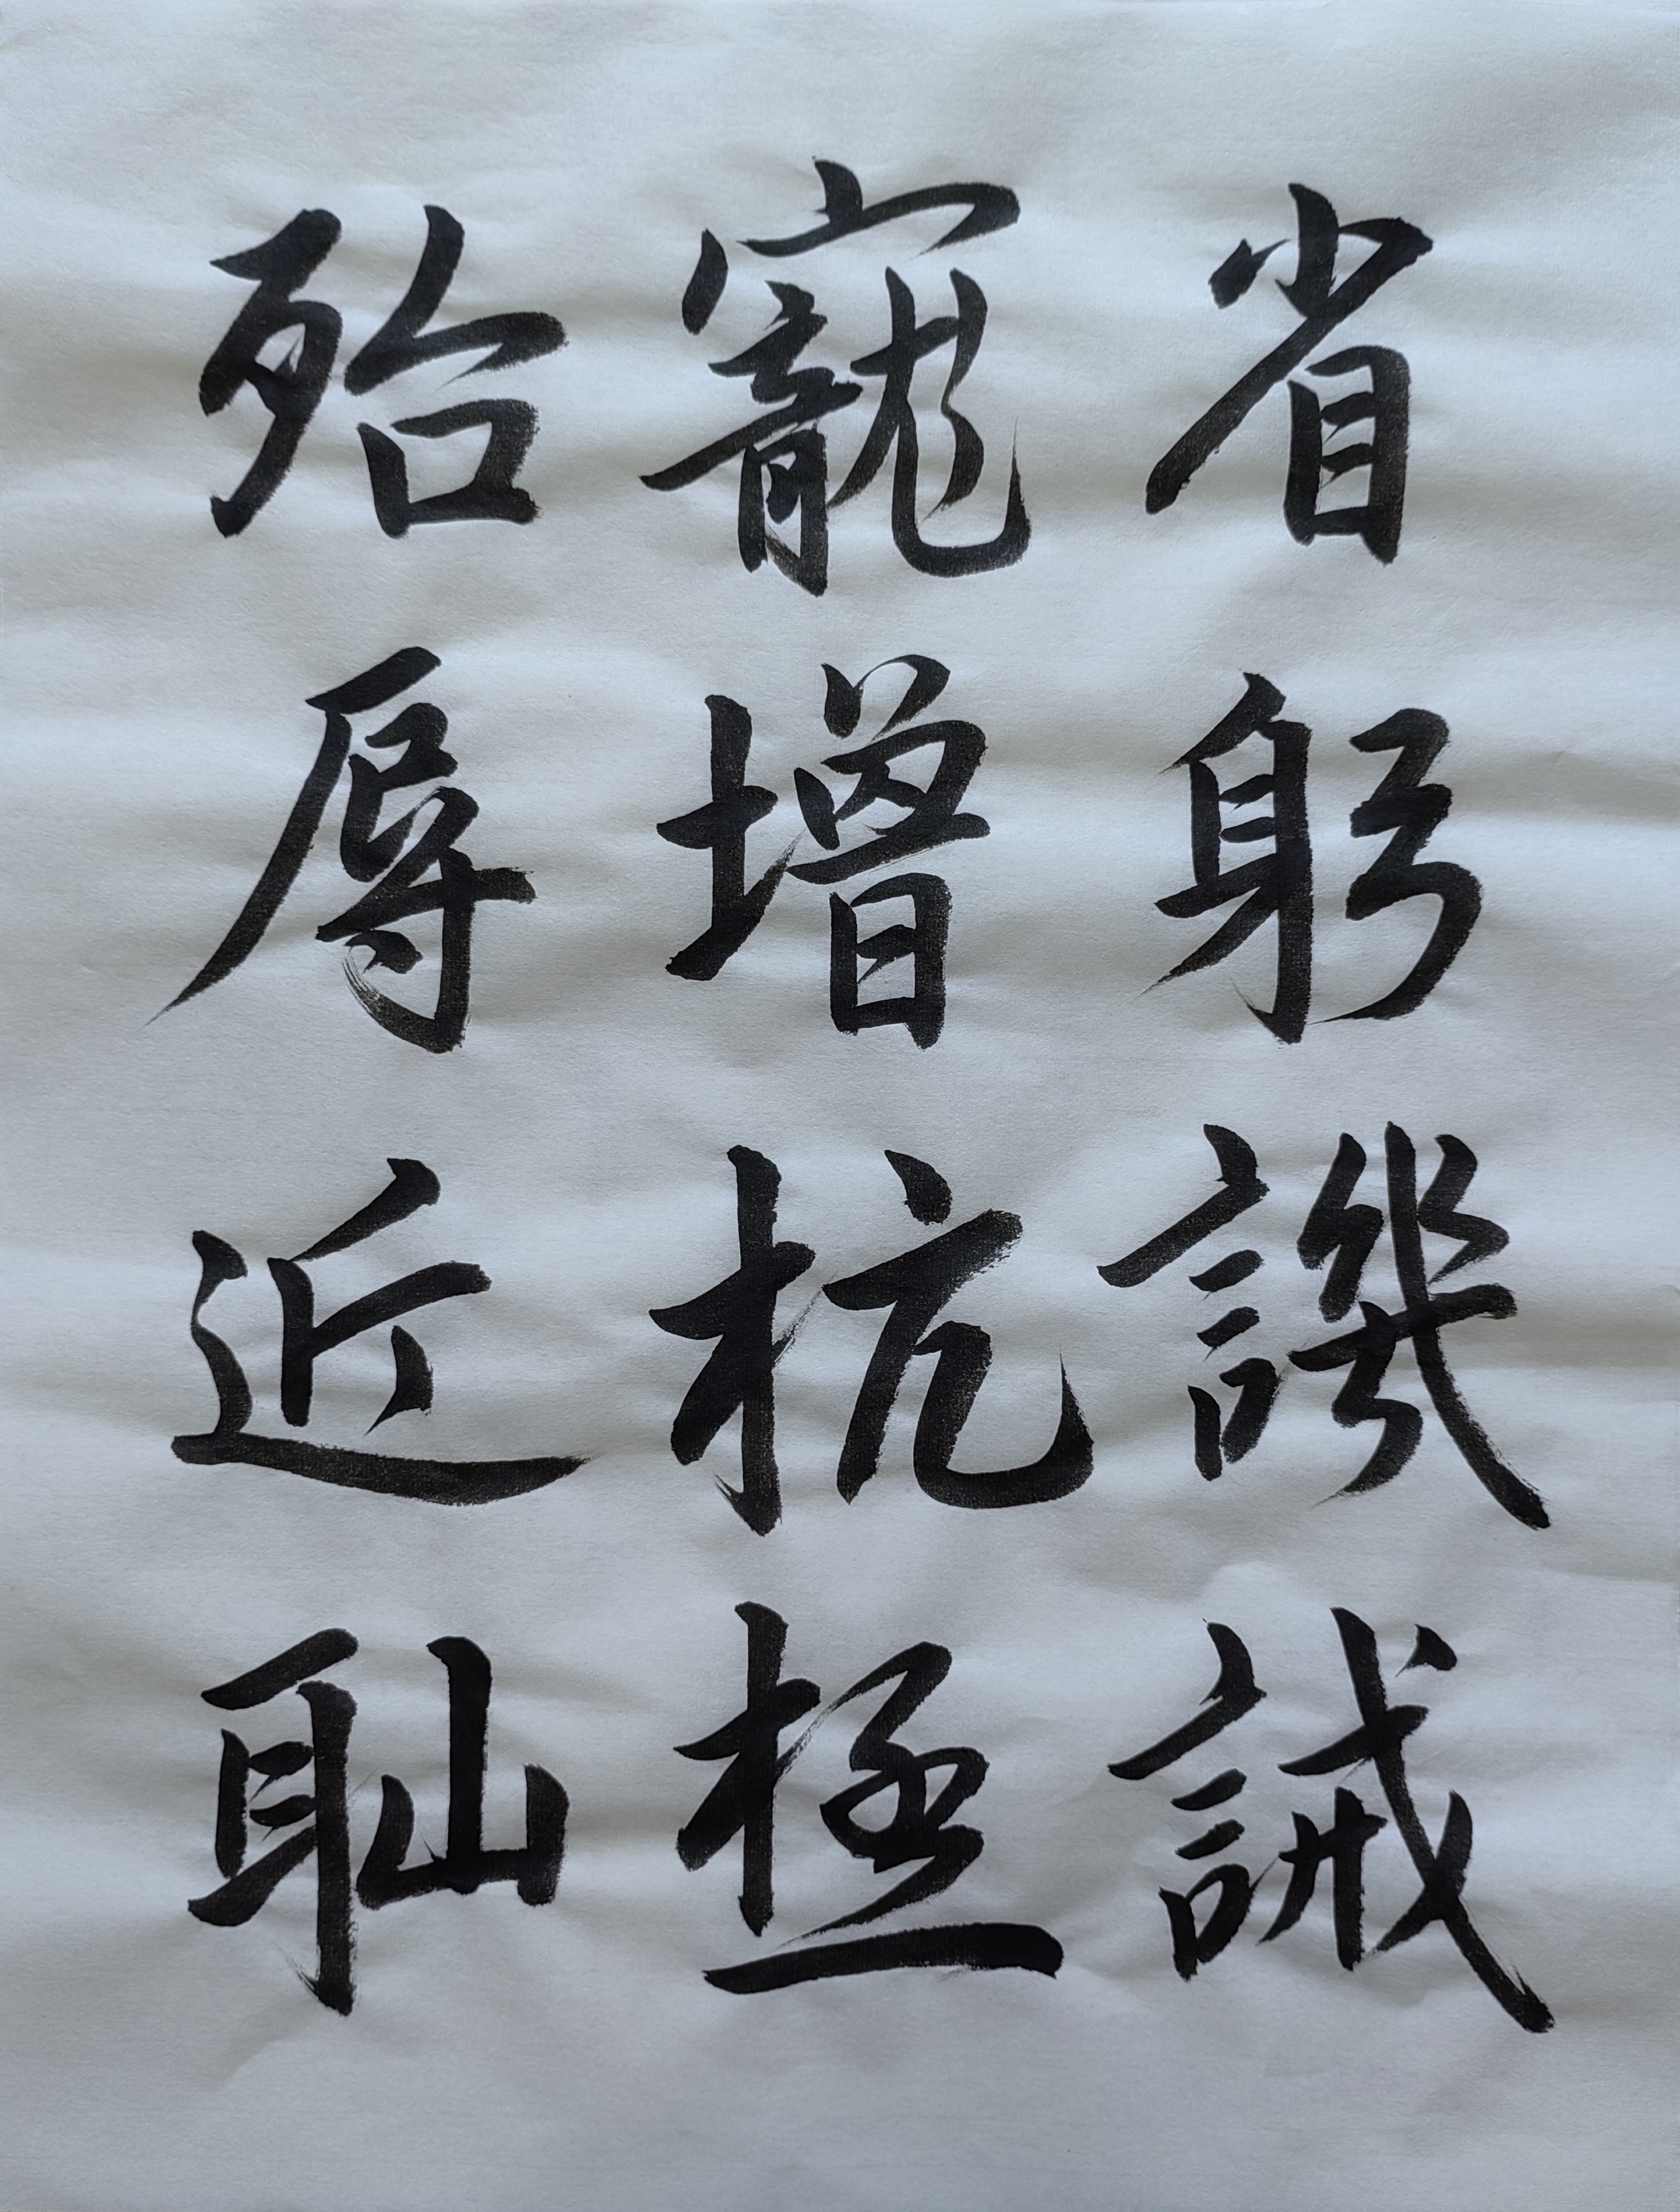 省躬譏誡
寵增抗極
殆辱近恥